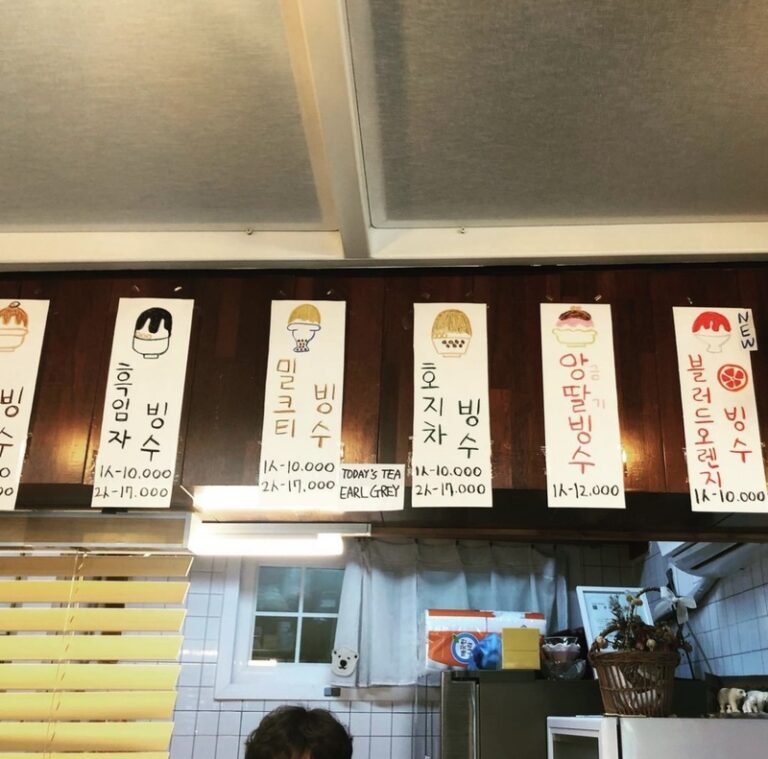 빙수
흑임자
빙수
1人-10.000
2人-17.000
밀크티
빙수
1人-10.000
2人-17.000
TODAY'S TEA
EARL GREY
호지차
빙수
1人-10.000
2人-17.000
앙금딸기빙수
1人-12.000
NEW
블러드오렌지
빙수
1人-10.000